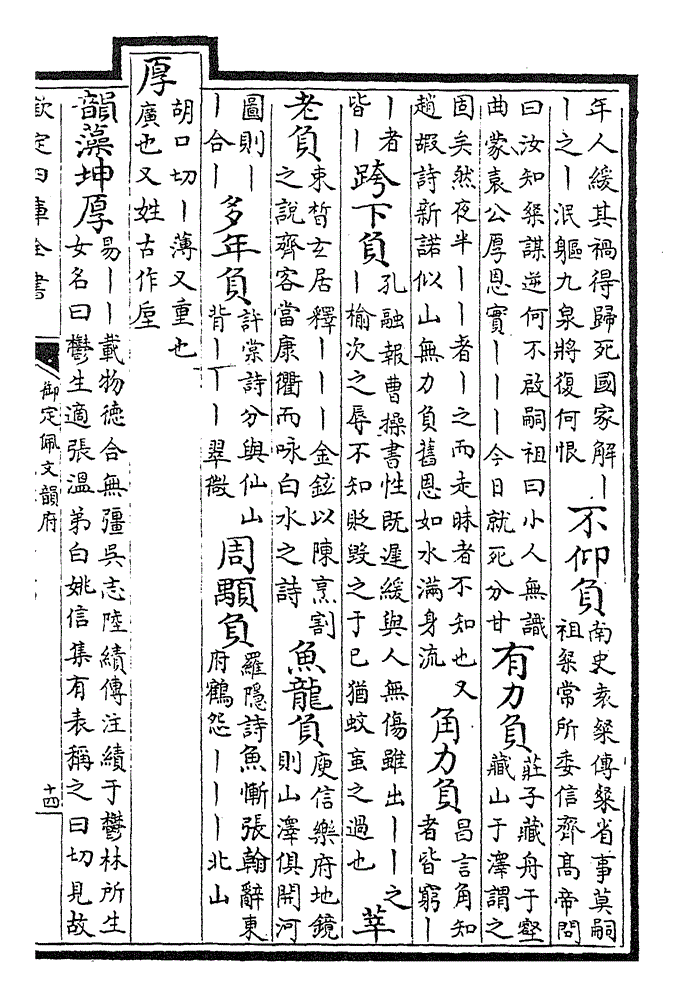 年人緩其禍得歸死國家解丨
丨之丨泯軀九泉將復何恨
不仰負
南史袁粲傳粲省事莫嗣
祖粲常所委信齊髙帝問
曰汝知粲謀逆何不啟嗣祖曰小人無識
曲蒙袁公厚恩實丨丨丨今日就死分甘
有力負
莊子藏舟于壑
藏山于澤謂之
固矣然夜半丨丨者丨之而走昧者不知也又
趙嘏詩新諾似山無力負舊恩如水滿身流
角力負
昌言角知
者皆窮丨
丨者
皆丨
跨下負
孔融報曹操書性既遲緩與人無傷雖出丨丨之
丨榆次之辱不知貶毀之于已猶蚊䖟之過也
莘
老負
束晳玄居釋丨丨丨金鉉以陳烹割
之說齊客當康衢而咏白水之詩
魚龍負
庾信樂府地鏡
則山澤俱開河
圖則丨
丨合丨
多年負
許棠詩分與仙山
背丨丨丨翠微
周顒負
羅隱詩魚慚張翰辭東
府鶴怨丨丨丨北山
厚
胡口切丨薄又重也
廣也又姓古作垕
韻藻坤厚
易丨丨載物德合無疆吳志陸績傳注績于鬱林所生
女名曰鬱生適張溫弟白姚信集有表稱之曰切見故
欽定四庫全書
御定佩文韻府
十四